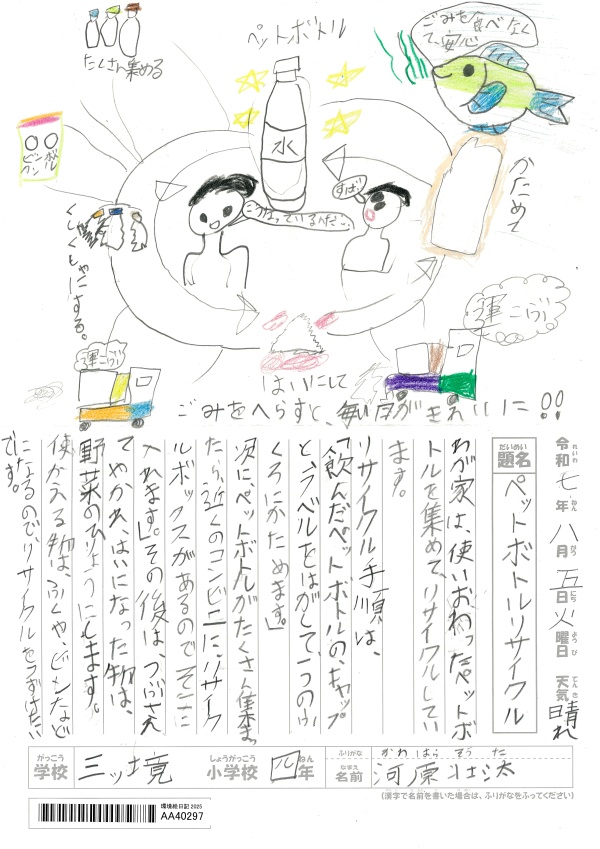 ペットボトル
ごみを食べなく
て、安心
たくさん集める
ビン
カン
ボ
トル
かためて
水
すばい
くしゃくしゃにする。
運ぶ
運ぶ
はいにして
ごみをへらすと、毎日がきれいに!!
令和七年八月五日火曜日 天気晴れ
れいわ ねん がつ にち ようび てんき
題名 ペットボトルリサイクル
だいめい
わが家は、使いおわったペットボ
トルを集めて、リサイクルしてい
ます。
リサイクル手順は、
「飲んだペットボトルの、キャップ
と、ラベルをはがして、一つのふ
くろにかためます。」
次に、ペットボトルがたくさん集まっ
たら、近くのコンビニに、リサイク
ルボックスがあるのでそこに
入れます。」その後は、つぶさえ
てやかれ、はいになった物は、
野菜のひりょうにもします。
使かえる物は、ふくや、ビンなど
になるので、リサイクルをつずけたい
です。
がっこう しょうがっこう ねん ふりがな かわはら そうた
学校 三ッ境 小学校 四年 なまえ 名前 河原 壮汰
(漢字で名前を書いた場合は、ふりがなをふってください)
環境絵日記 2025
AA40297